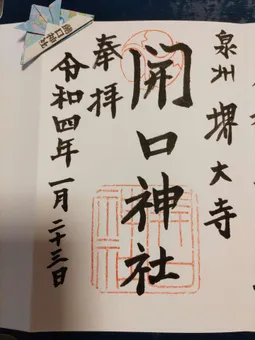 泉州堺大寺
開口神社
奉拝
令和四年一月二十三日
開口神社